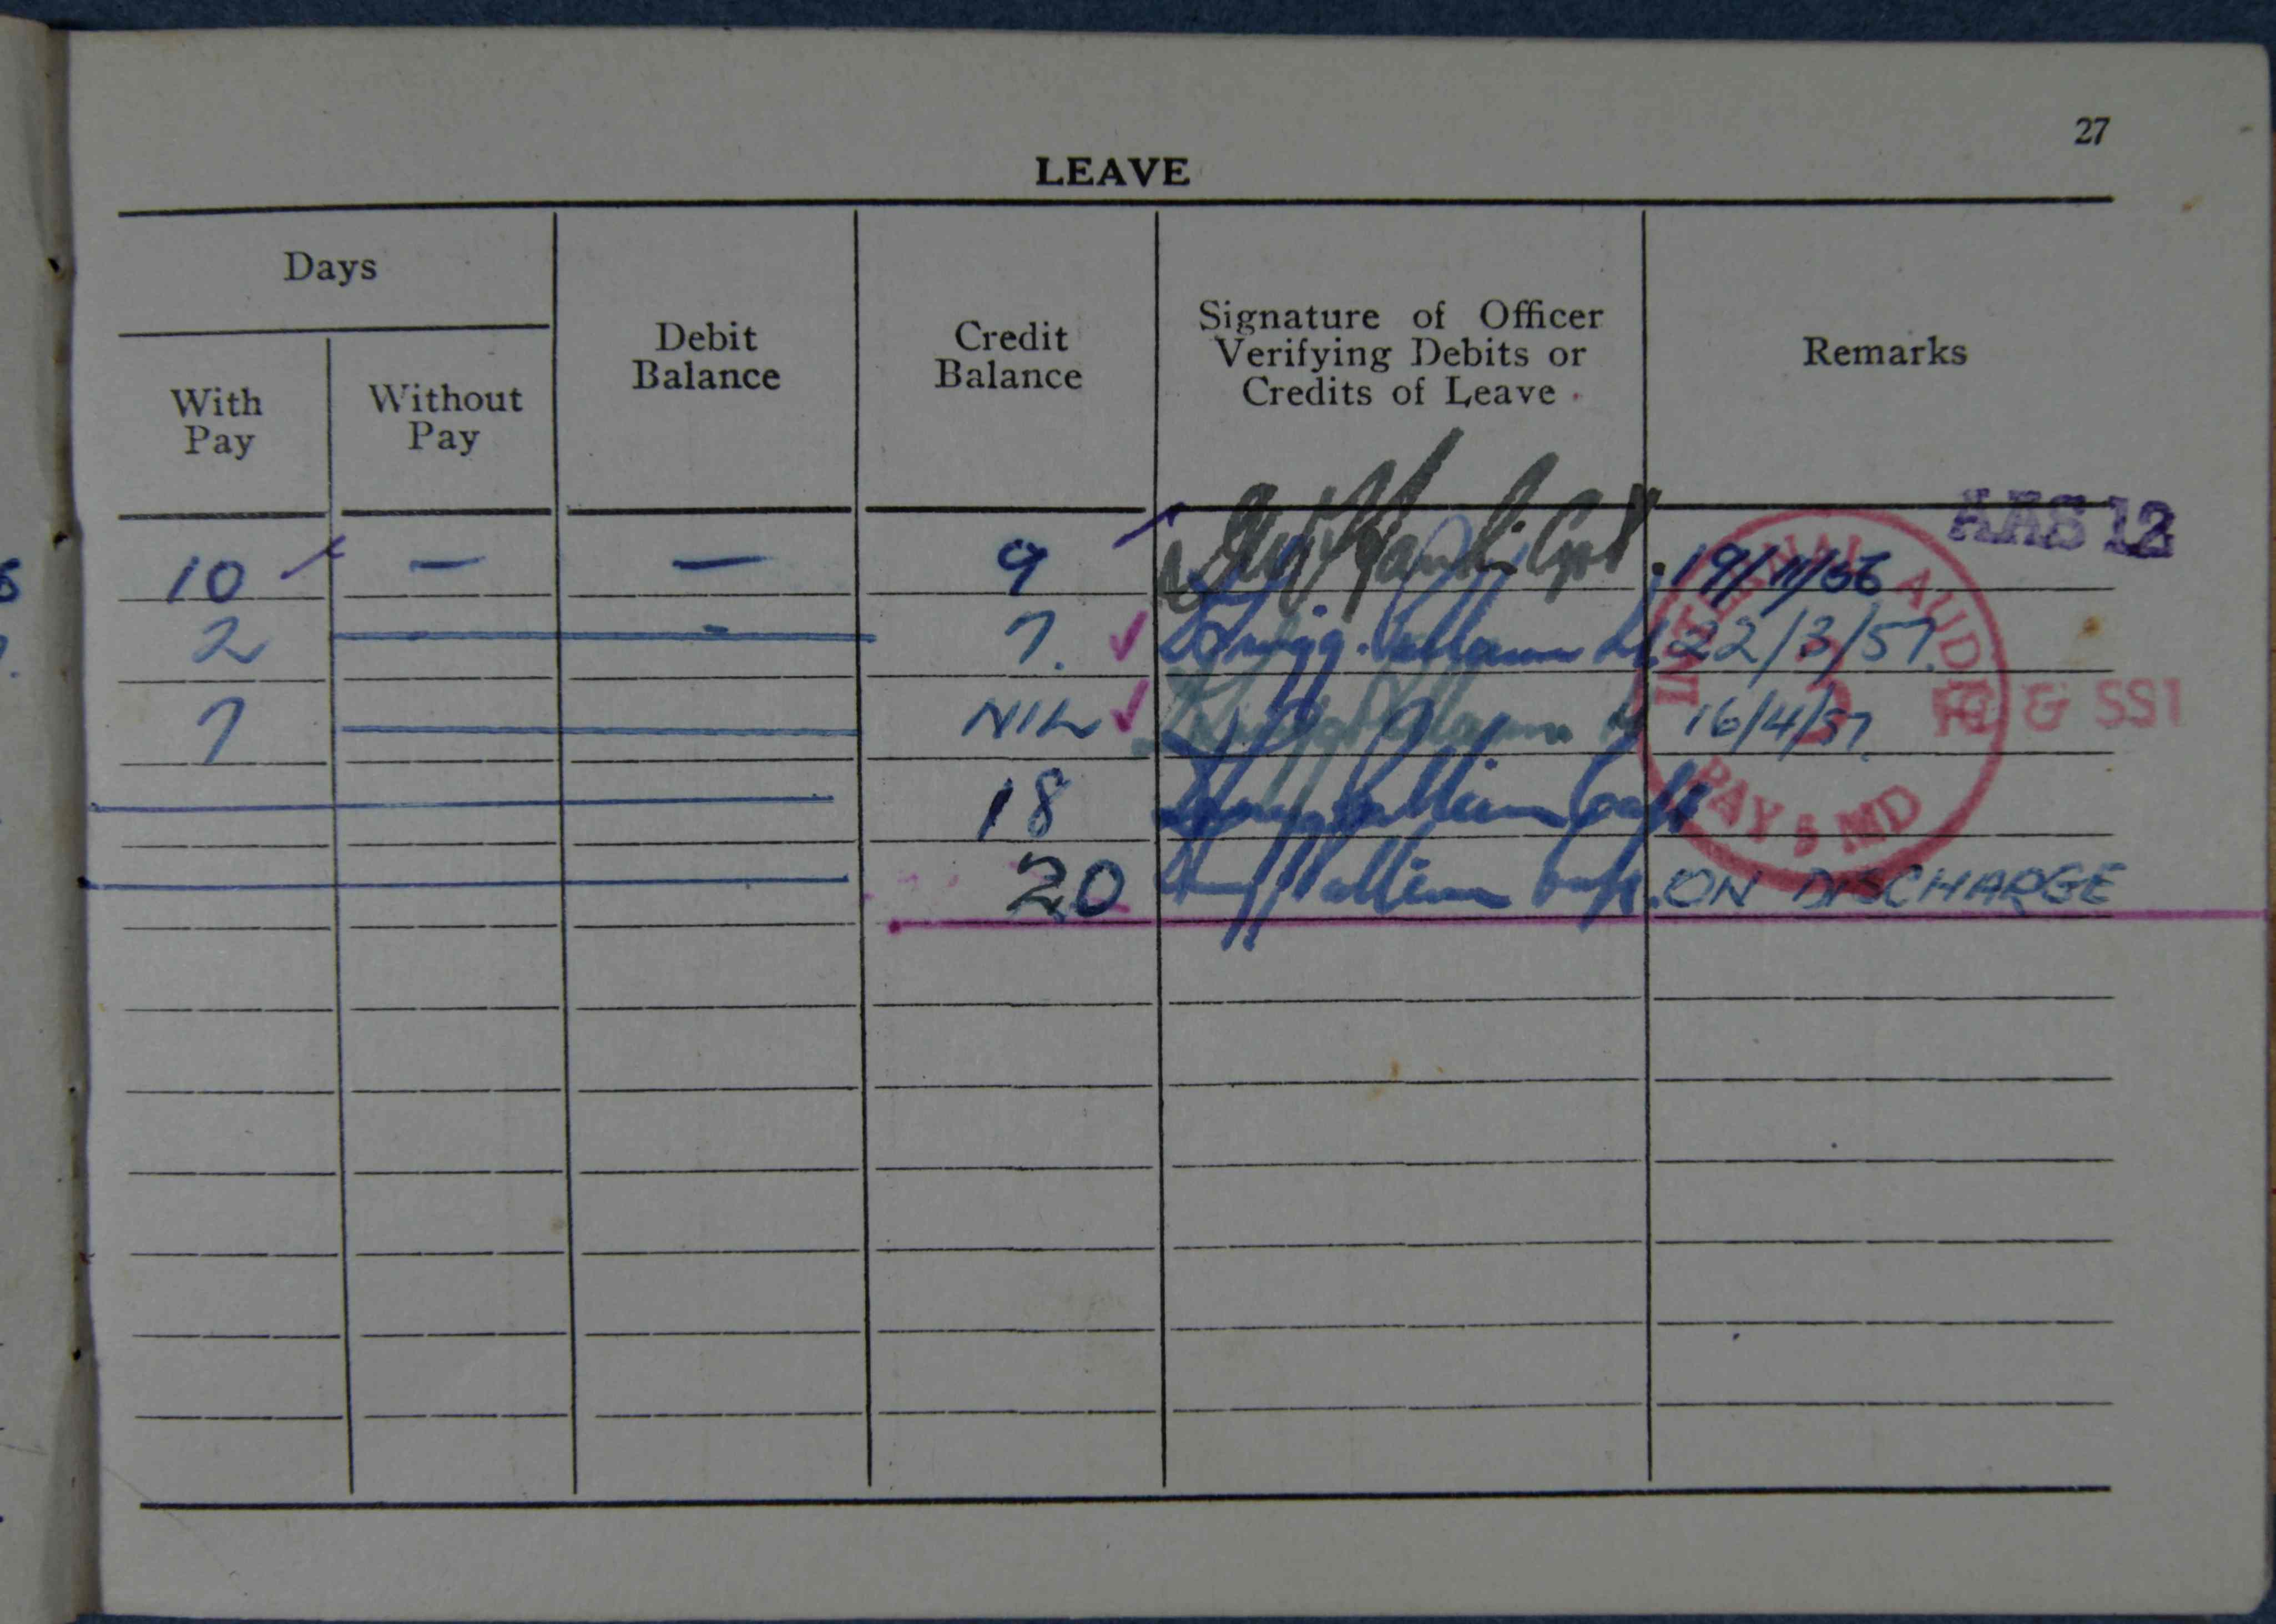 27
LEAVE
Days
With Pay
Without Pay
Debit Balance
Credit Balance
Signature of Officer
Verifying Debits or
Credits of Leave
Remarks
AAS 12
10 — — 9 19/11/56
2 — 7. 22/3/57.
7 NIL 16/4/57.
18
20 ON DISCHARGE
INTERNAL AUDIT
3
PAY 5 MD
& SS1